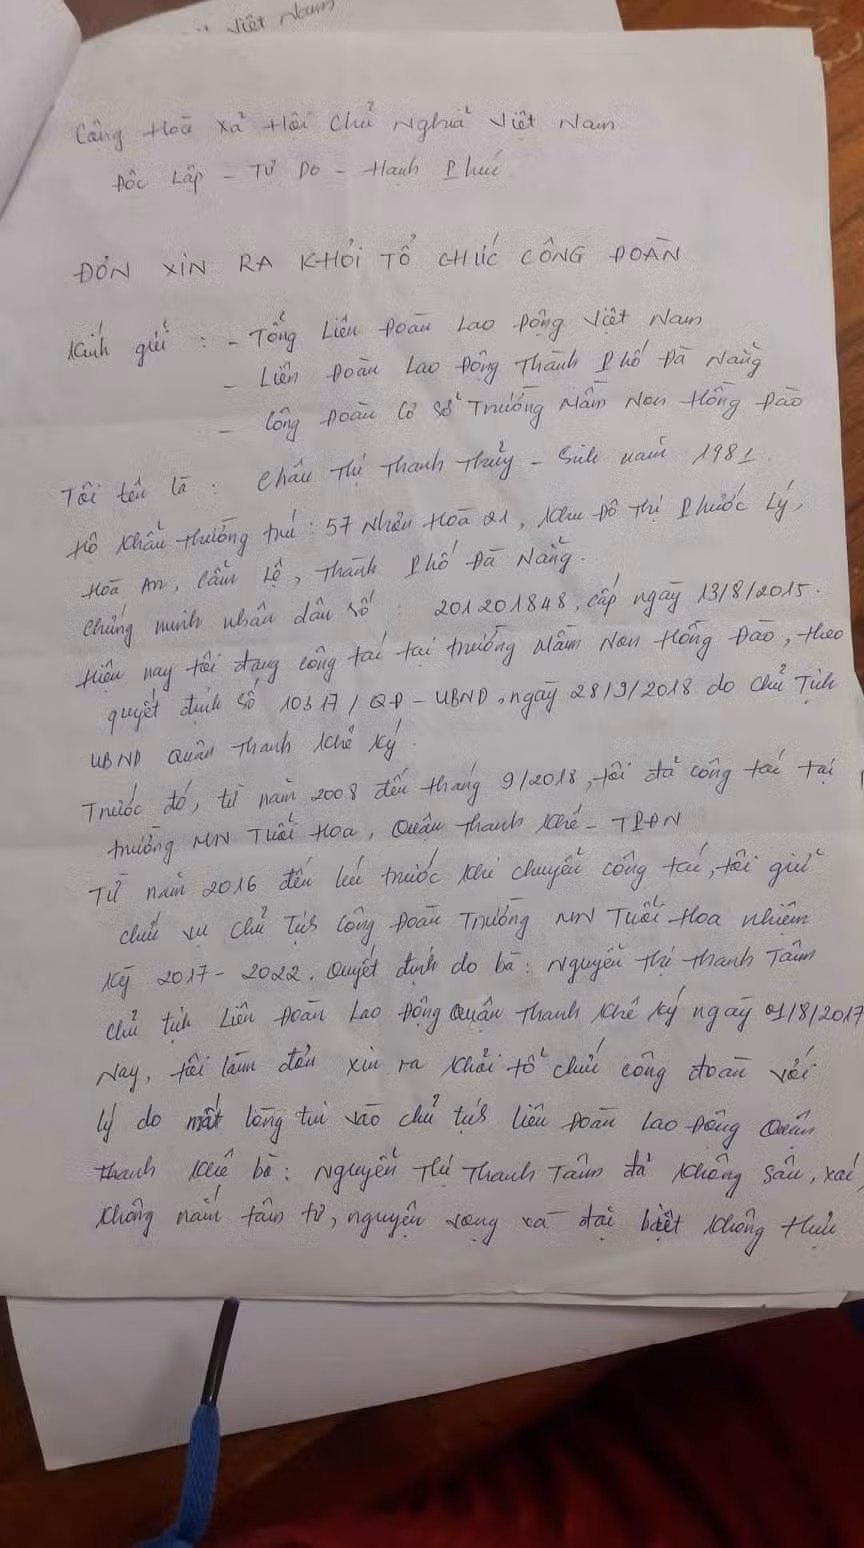 Việt Nam
Cộng Hoà Xã Hội Chủ Nghĩa Việt Nam
Độc Lập - Tự Do - Hạnh Phúc
ĐƠN XIN RA KHỎI TỔ CHỨC CÔNG ĐOÀN
Kính gửi : - Tổng Liên Đoàn Lao Động Việt Nam
- Liên Đoàn Lao Động Thành Phố Đà Nẵng
- Công Đoàn Cơ Sở Trường Mầm Non Hồng Đào
Tôi tên là : Châu Thị Thanh Thủy - Sinh năm 1981.
Hộ khẩu thường trú : 57 Nhơn Hoà 21, Khu Đô Thị Phước Lý,
Hoà An, Cẩm Lệ, Thành Phố Đà Nẵng.
Chứng minh nhân dân số : 201201848, cấp ngày 13/8/2015.
Hiện nay tôi đang công tác tại trường Mầm Non Hồng Đào, theo
quyết định số 10317/QĐ - UBND, ngày 28/9/2018 do Chủ Tịch
UBND Quận Thanh Khê ký.
Trước đó, từ năm 2008 đến tháng 9/2018, tôi đã công tác tại
trường MN Tuổi Hoa, Quận Thanh Khê - TPĐN
Từ năm 2016 đến lúc trước khi chuyển công tác, tôi giữ
chức vụ Chủ tịch Công Đoàn Trường MN Tuổi Hoa nhiệm
kỳ 2017 - 2022. Quyết định do bà : Nguyễn Thị Thanh Tâm
Chủ tịch Liên Đoàn Lao Động Quận Thanh Khê ký ngày 01/8/2017
Nay, tôi làm đơn xin ra khỏi tổ chức công đoàn với
lý do mất lòng tin vào chủ tịch liên Đoàn Lao Động Quận
Thanh Khê bà : Nguyễn Thị Thanh Tâm đã không sâu, xác,
không nắm tâm tư, nguyện vọng và đặc biệt không thực